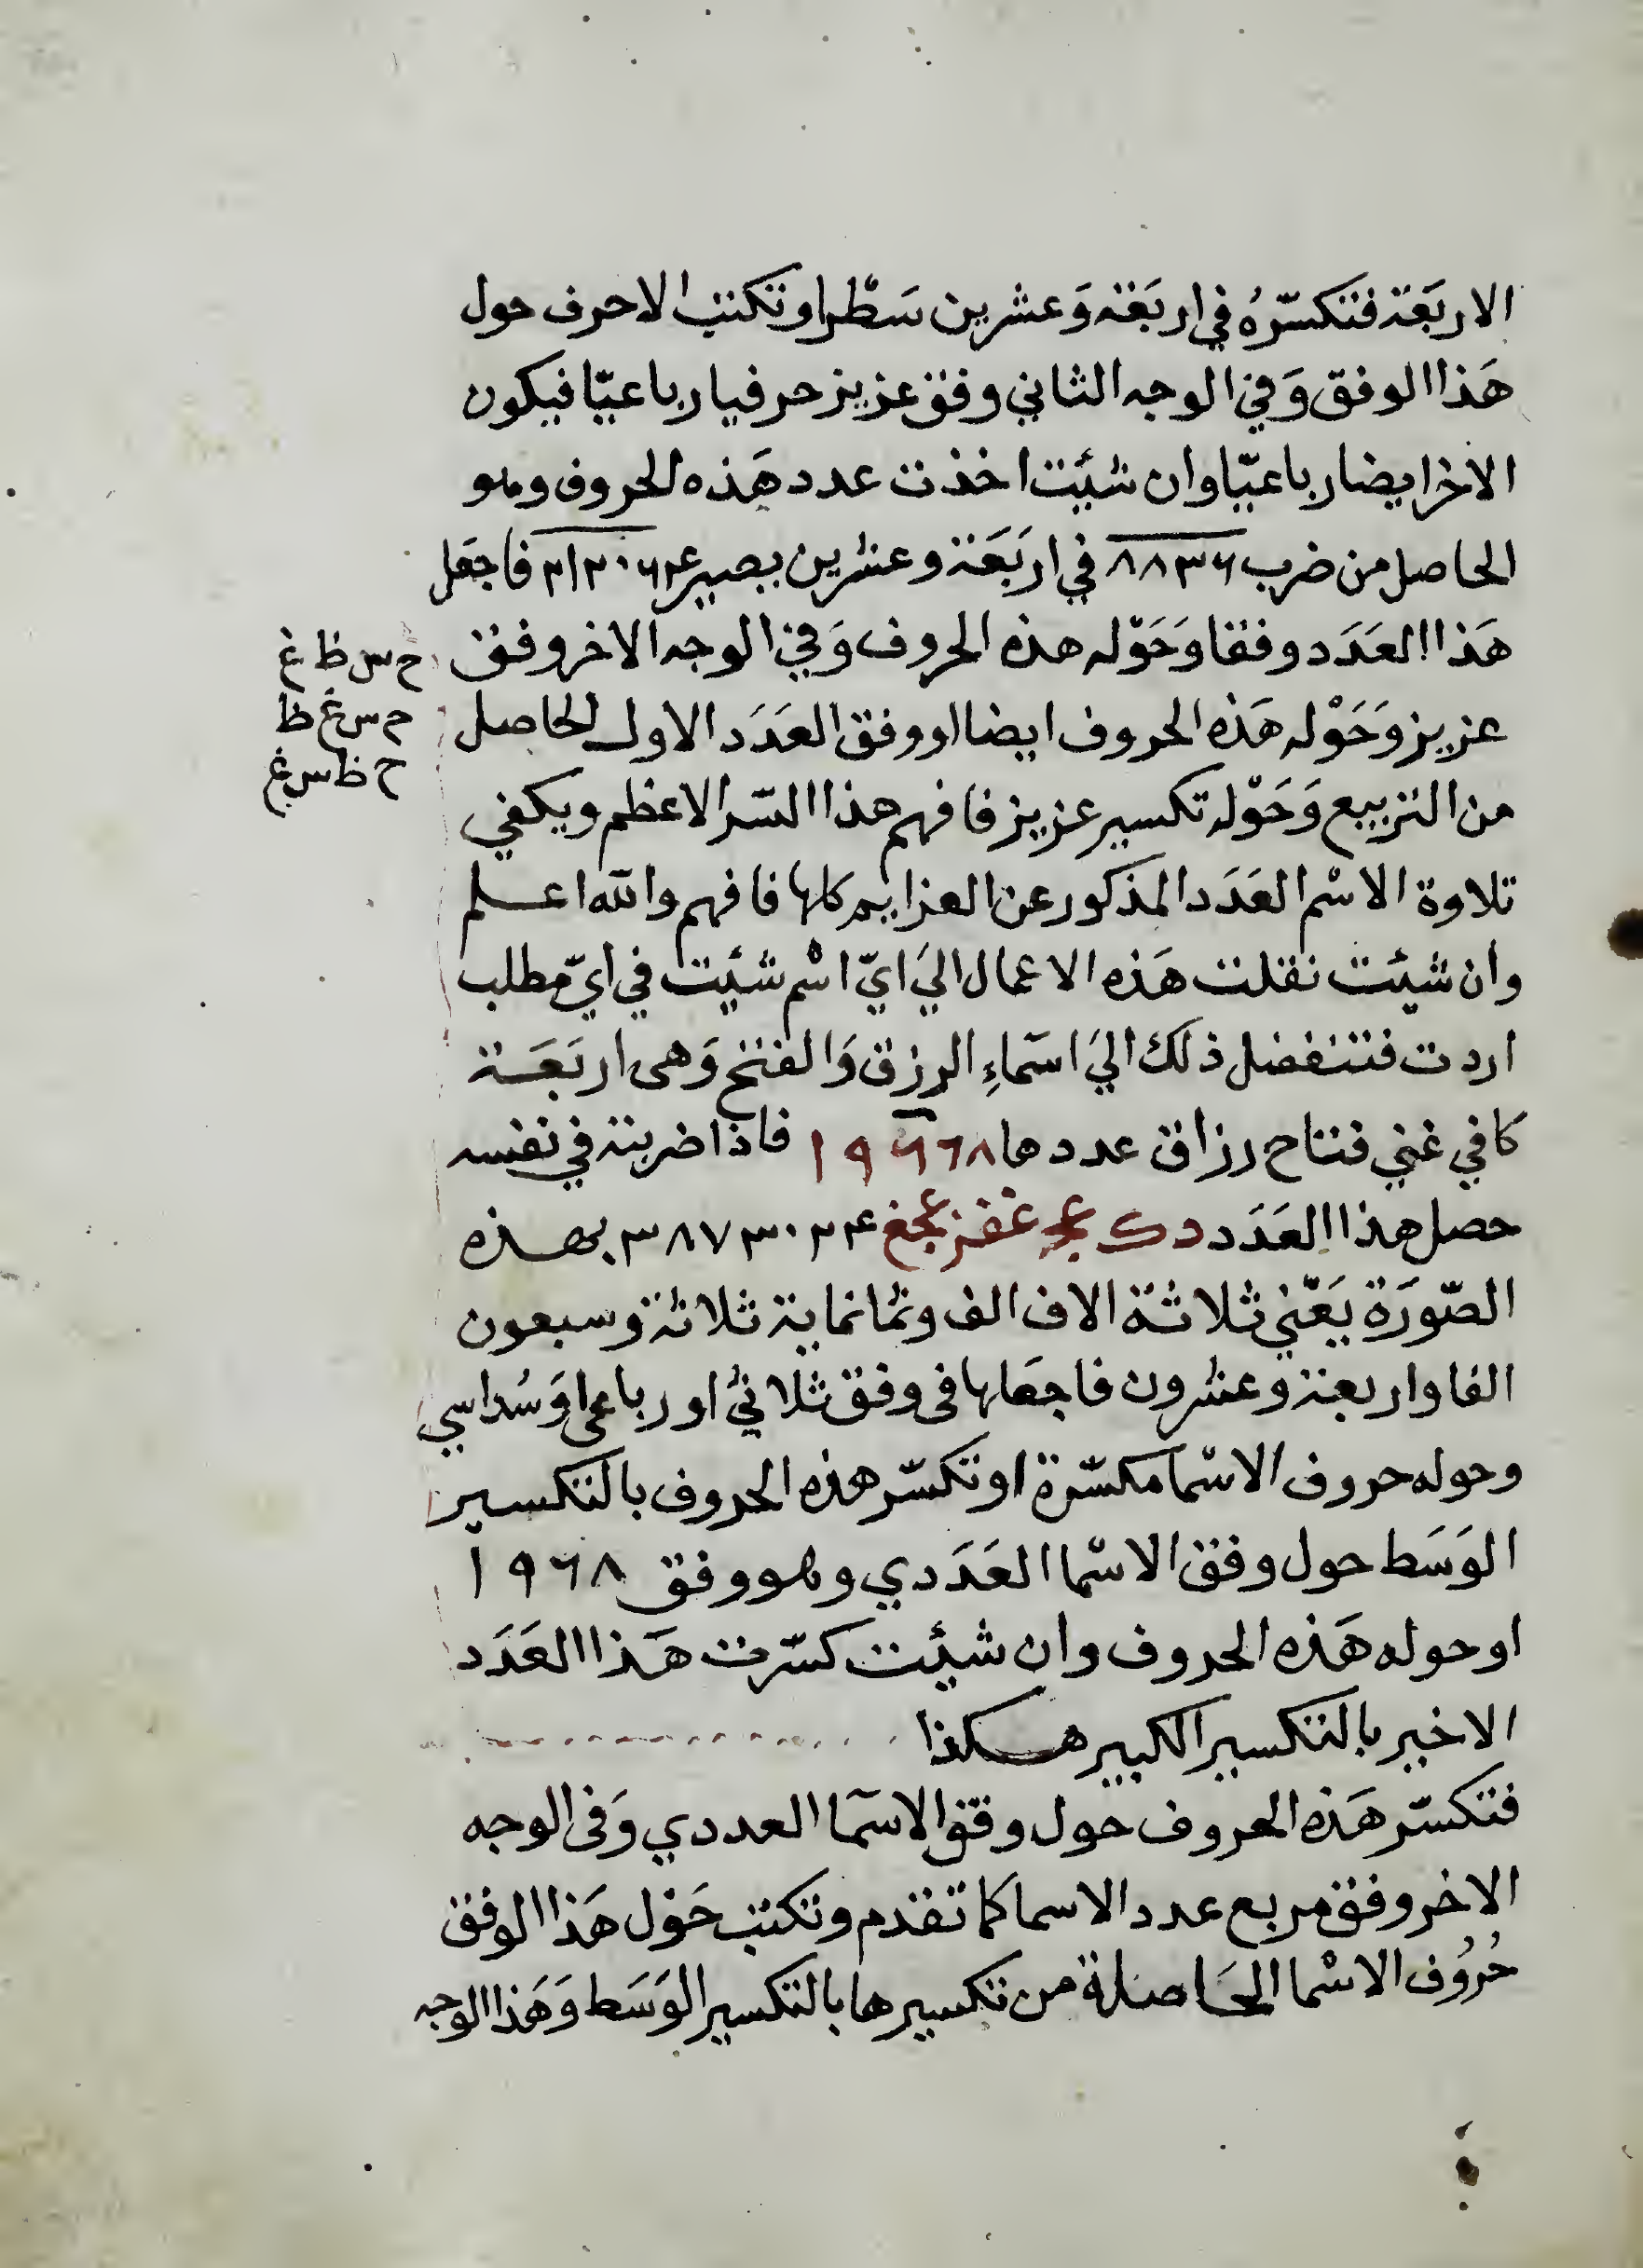 الاربَعَة فتكسّرهُ في اربَعَة وَعشرين سَطْرا وتكتب الاحرف حول
هَذا الوفق وَفي الوجه الثاني وفق عزيز حرفيا رباعيّا فيكون
الاخر ايضا رباعيّا وان شيئت اخذت عدد هَذه الحروف وهو
الحاصل من ضرب ٨٨٣٦ في اربَعَة وعشرين بصير ٢١٢٠٦٤ فاجعَل
هَذا العَدَد وفقا وَحَوْله هذه الحروف وَفي الوجه الاخر وفق
عزيز وَحَوْله هَذه الحروف ايضا او وفق العَدَد الاول الحاصل
من التربيع وَحَوْله تكسير عزيز فافهم هذا السّر الاعظم ويكفي
تلاوة الاسْم العَدَد المذكور عن العزايم كلها فافهم والله اعلم
وان شيئت نقلت هَذه الاعمال اليَ ايّ اسْم شيئت في ايّ مطلب
اردت فتنفضل ذلك اليَ اسمآءِ الرزق وَالفتح وَهى اربَعَة
كافي غني فتاح رزاق عددها ١٩٦٦٨ فاذا ضربته في نفسه
حصل هذا العَدَد دك غفز عجغ ٣٨٧٣٠٢٤ بهذه
الصّورَة يَعْني ثلاثة الاف الف وثمانماية ثلاثة وسبعون
الفا واربعة وعشرون فاجعَلها فى وفق ثلاثي او رباعى اوَ سُداسي
وحوله حروف الاسْما مكسّرة او تكسّر هذه الحروف بالتكسير
الوَسَط حول وفق الاسْما العَدَدي وهو وفق ١٩٦٨
او حوله هَذه الحروف وان شيئت كسّرت هَذا العَدَد
الاخير بالتكسير الكبير هكذا
فتكسّر هَذه الحروف حول وفق الاسمآ العددي وَفى الوجه
الاخر وفق مربع عدد الاسما كما تقدم وتكتب حَوْل هَذا الوفق
حُرُوف الاسْما الحَاصلة من تكسيرها بالتكسير الوَسَط وَهَذا الوجه
ح س ظ غ
ح س غ ظ
ح ظ س غ